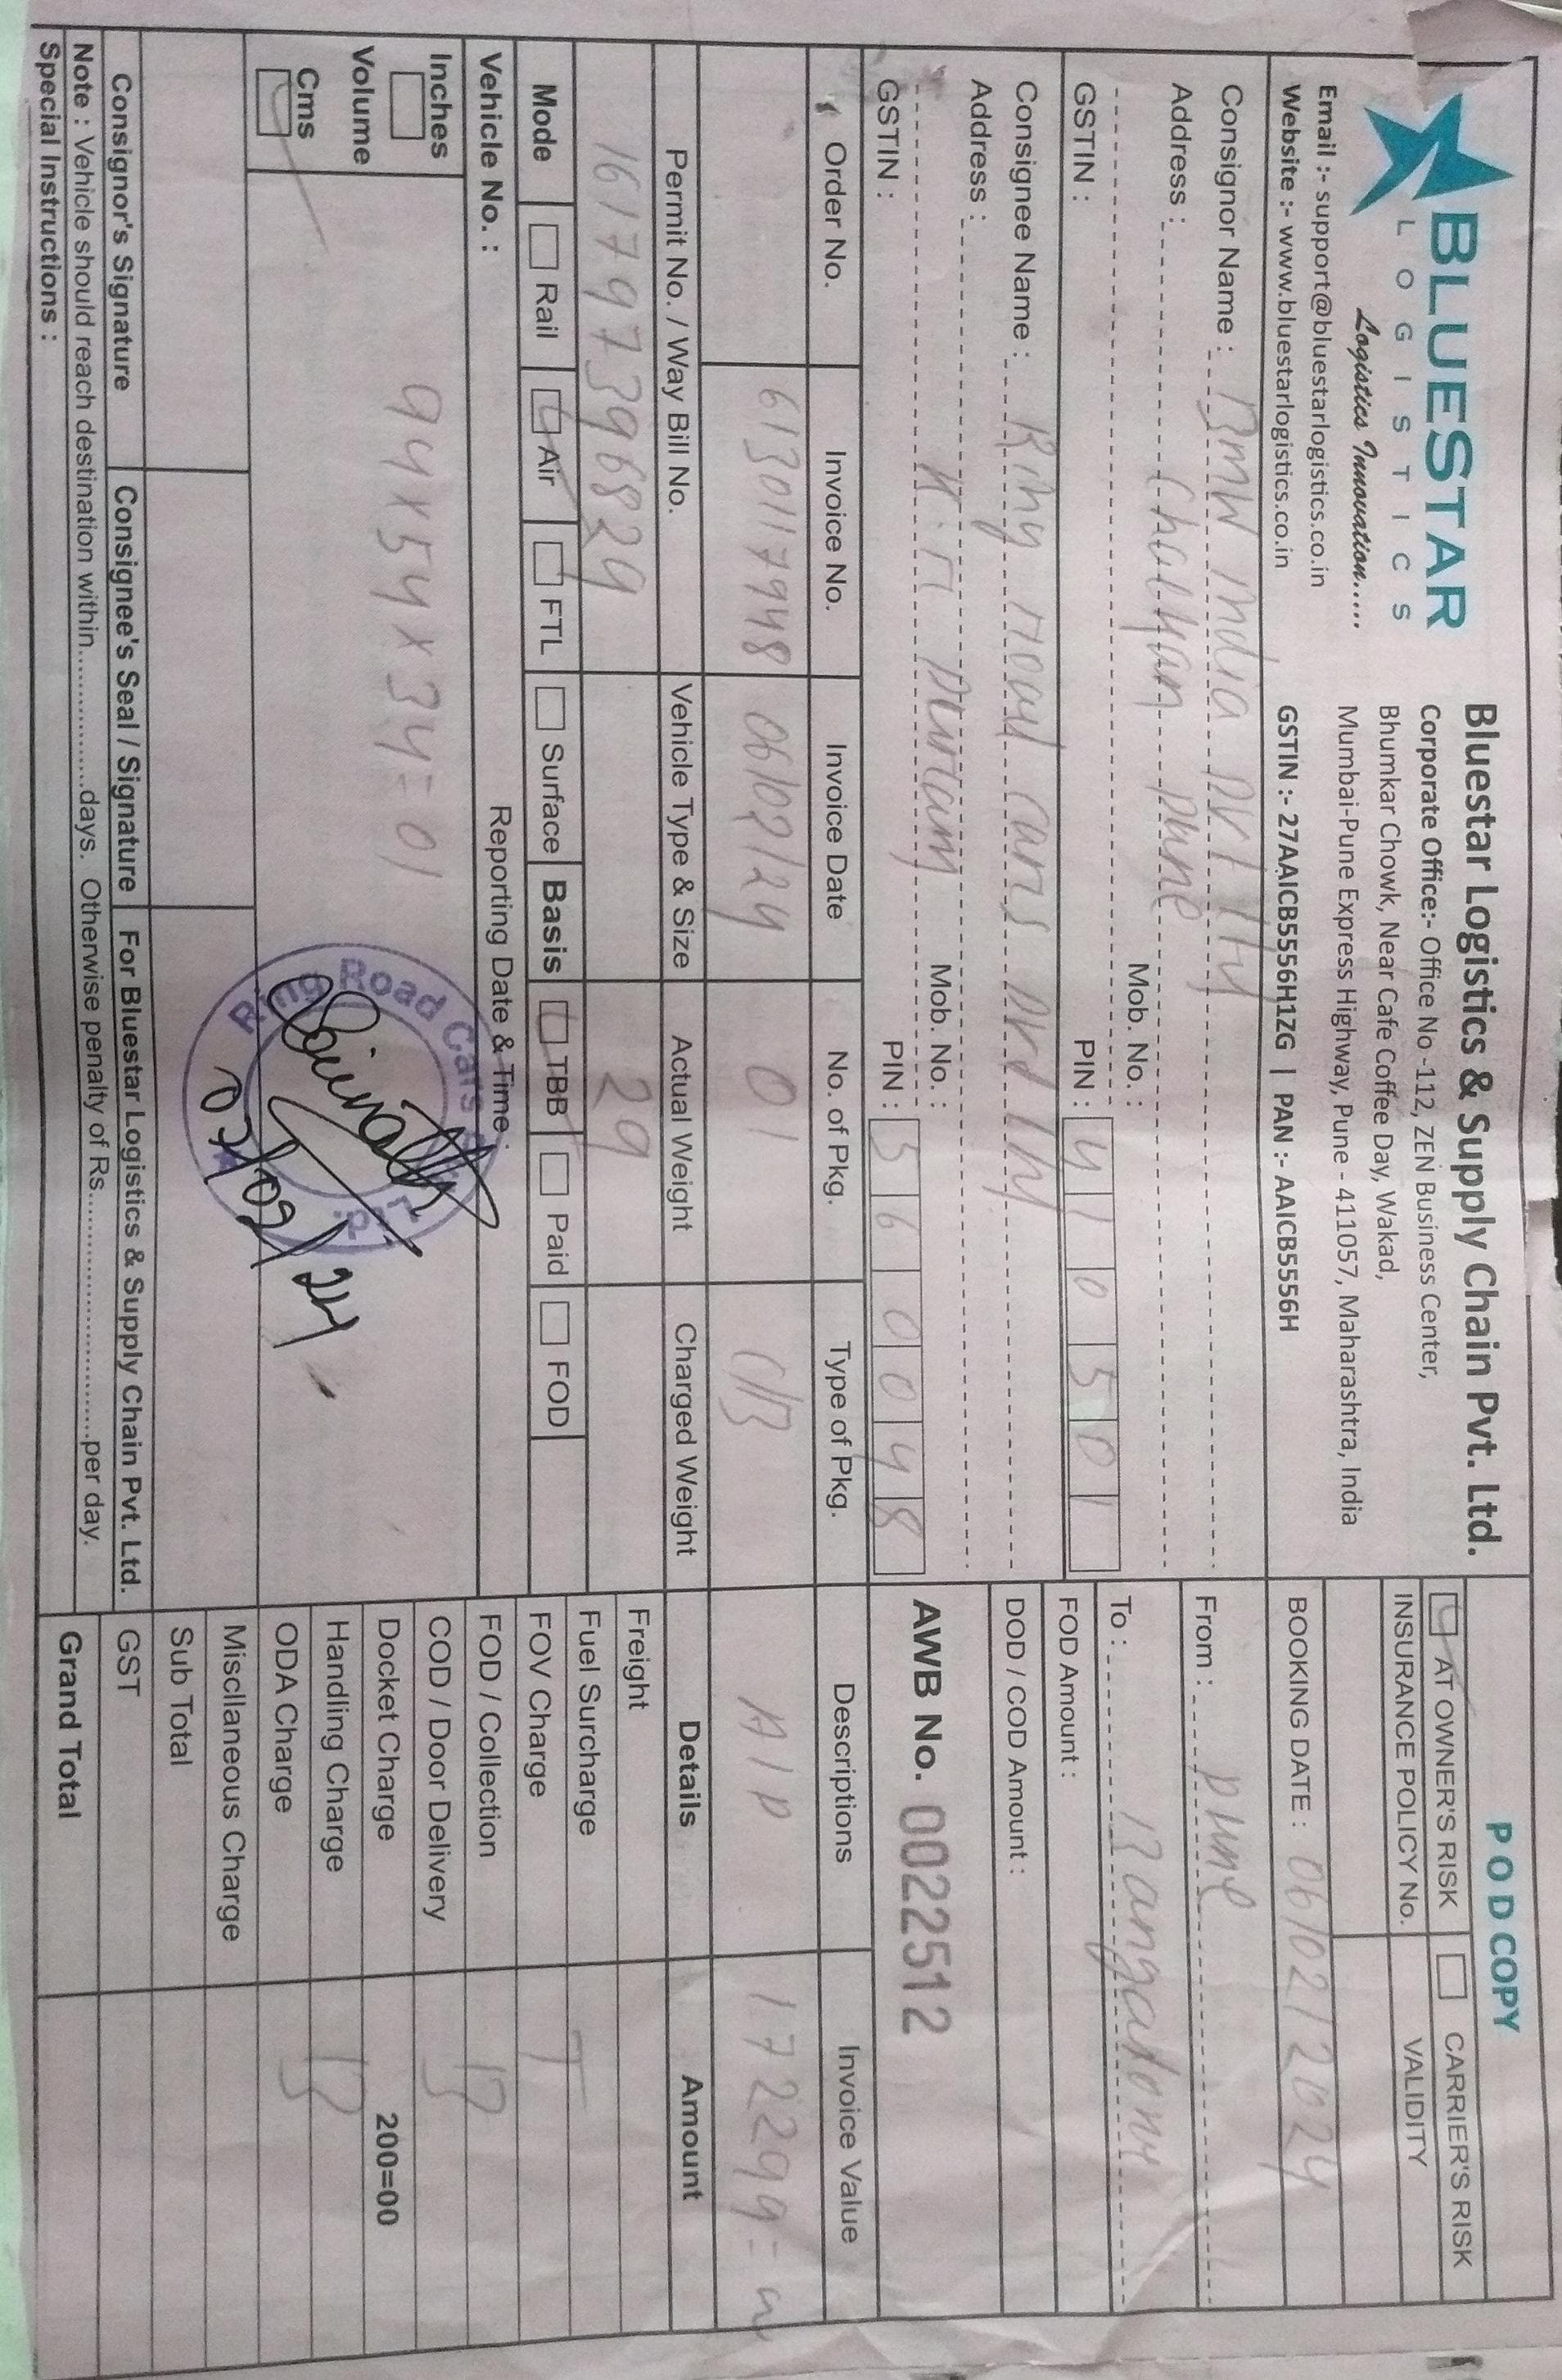 BLUESTAR
LOGISTICS
Logistics Innovation.....
Email :- support@bluestarlogistics.co.in
Website :- www.bluestarlogistics.co.in
Bluestar Logistics & Supply Chain Pvt. Ltd.
Corporate Office:- Office No -112, ZEN Business Center,
Bhumkar Chowk, Near Cafe Coffee Day, Wakad,
Mumbai-Pune Express Highway, Pune - 411057, Maharashtra, India
GSTIN :- 27AAICB5556H1ZG | PAN :- AAICB5556H
POD COPY
AT OWNER'S RISK CARRIER'S RISK
INSURANCE POLICY No. VALIDITY
BOOKING DATE : 06/02/2024
Consignor Name : BMW india pvt ltd
Address : Chalkan pune
Mob. No. :
GSTIN : PIN : 410501
From : pune
To : Bangalore
FOD Amount :
DOD / COD Amount :
Consignee Name : Ring road cars pvt ltd
Address :
K.R puram Mob. No. :
GSTIN : PIN : 560048
AWB No. 0022512
Order No. Invoice No. Invoice Date No. of Pkg. Type of Pkg. Descriptions Invoice Value
6130117948 06/02/24 01 C/B A/P 172299=
Permit No. / Way Bill No. Vehicle Type & Size Actual Weight Charged Weight Details Amount
161797396829 29
Mode Rail Air FTL Surface Basis TBB Paid FOD
Vehicle No. : Reporting Date & Time :
Inches
Volume
Cms
94x54x34=01
Ring Road Cars Ltd.
07/02/24
Freight
Fuel Surcharge
FOV Charge T
FOD / Collection B
COD / Door Delivery
Docket Charge 200=00
Handling Charge B
ODA Charge
Miscllaneous Charge
Sub Total
GST
Grand Total
Consignor's Signature Consignee's Seal / Signature For Bluestar Logistics & Supply Chain Pvt. Ltd.
Note : Vehicle should reach destination within................days. Otherwise penalty of Rs.............................per day.
Special Instructions :